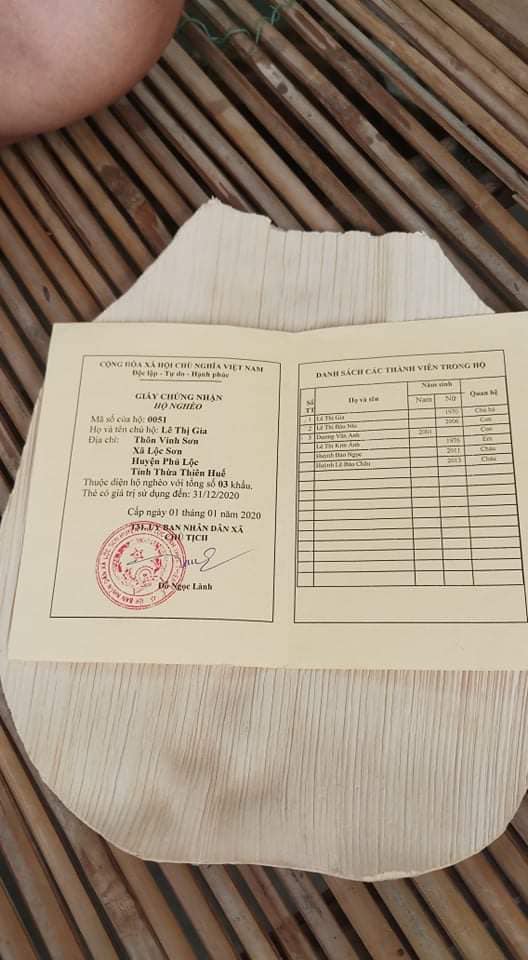 CỘNG HÒA XÃ HỘI CHỦ NGHĨA VIỆT NAM
Độc lập - Tự do - Hạnh phúc
GIẤY CHỨNG NHẬN
HỘ NGHÈO
Mã số của hộ: 0051
Họ và tên chủ hộ: Lê Thị Gia
Địa chỉ: Thôn Vinh Sơn
Xã Lộc Sơn
Huyện Phú Lộc
Tỉnh Thừa Thiên Huế
Thuộc diện hộ nghèo với tổng số 03 khẩu.
Thẻ có giá trị sử dụng đến: 31/12/2020
Cấp ngày 01 tháng 01 năm 2020
TM. ỦY BAN NHÂN DÂN XÃ
CHỦ TỊCH
Đỗ Ngọc Lành
DANH SÁCH CÁC THÀNH VIÊN TRONG HỘ
Số TT Họ và tên Năm sinh Quan hệ
Nam Nữ
1 Lê Thị Gia 1970 Chủ hộ
2 Lê Thị Hậu 2006 Con
3 Dương Văn Anh 2001 Con
Lê Thị Kim Anh 1976 Em
Huỳnh Bảo Ngọc 2011 Cháu
Huỳnh Lê Bảo Châu 2013 Cháu